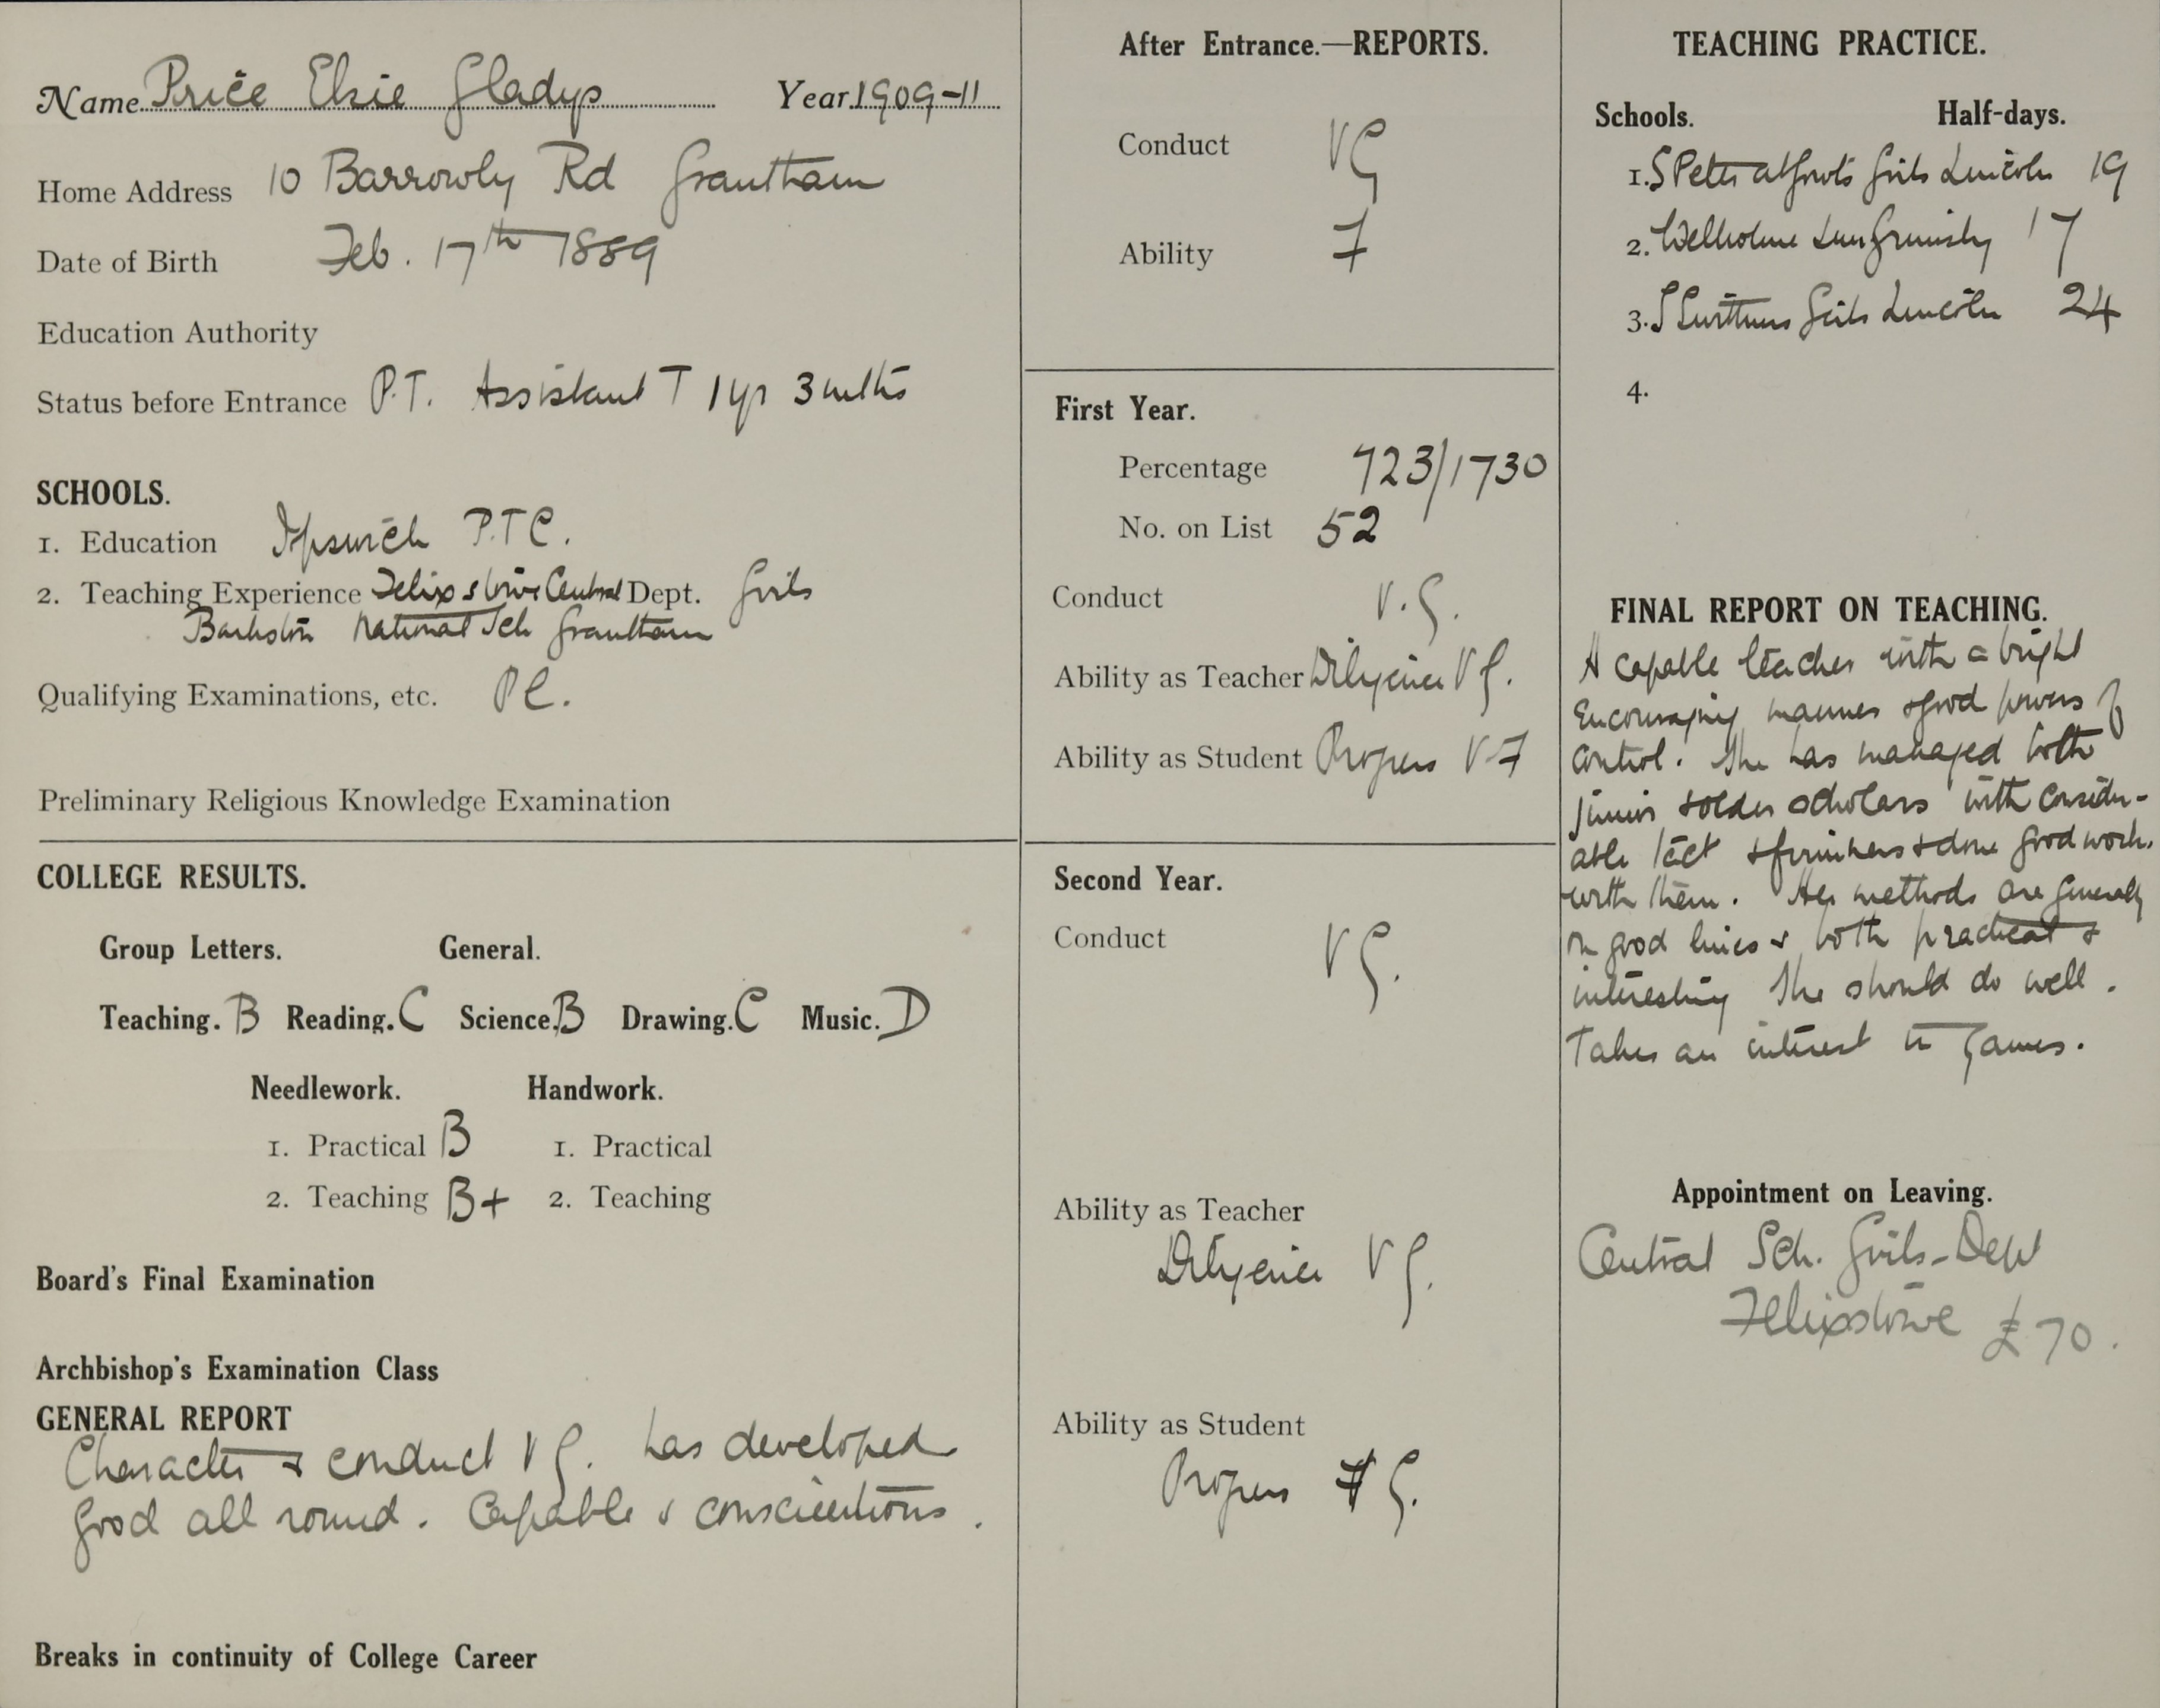 Name Price Elsie Gladys Year 1909-11
Home Address 10 Barrowby Rd Grantham
Date of Birth Feb. 17th 1889
Education Authority
Status before Entrance P.T. Assistant T 1 yr 3 mths
SCHOOLS.
1. Education Ipswich P.T.C.
2. Teaching Experience Felixstowe Central Dept. Girls
Barkston National Sch Grantham
Qualifying Examinations, etc. P.C.
Preliminary Religious Knowledge Examination
COLLEGE RESULTS.
Group Letters. General.
Teaching. B Reading. C Science. B Drawing. C Music. D
Needlework. Handwork.
1. Practical B 1. Practical
2. Teaching B+ 2. Teaching
Board's Final Examination
Archbishop's Examination Class
GENERAL REPORT
Character & conduct V G. has developed
good all round. Capable & conscientious.
Breaks in continuity of College Career
After Entrance.—REPORTS.
Conduct VG
Ability F
First Year.
Percentage 723/1730
No. on List 52
Conduct V.G.
Ability as Teacher Diligence V G.
Ability as Student Progress V F
Second Year.
Conduct V G.
Ability as Teacher
Diligence V G.
Ability as Student
Progress G.
TEACHING PRACTICE.
Schools. Half-days.
1. S Peter at Gowts Girls Lincoln 19
2. Welholme Grimsby 17
3. S Swithins Girls Lincoln 24
4.
FINAL REPORT ON TEACHING.
A capable teacher with a bright
encouraging manner & good powers of
control. She has managed both
junior & older scholars with consider-
able tact & firmness & done good work.
with them. Her methods are generally
on good lines & both practical &
interesting She should do well.
Takes an interest in games.
Appointment on Leaving.
Central Sch. Girls-Dept
Felixstowe £70.